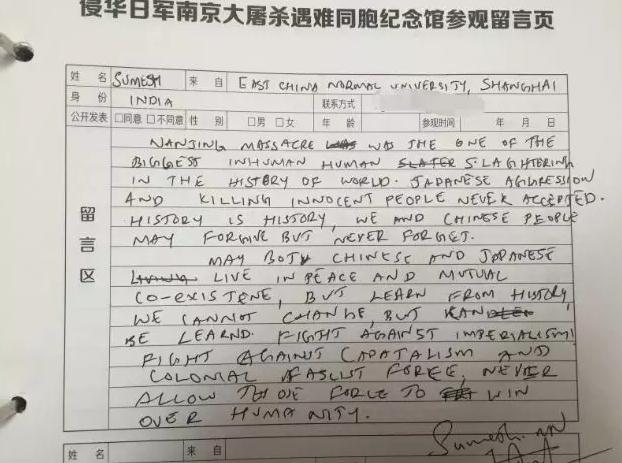 侵华日军南京大屠杀遇难同胞纪念馆参观留言页
姓 名 SUMESH 来 自 EAST CHINA NORMAL UNIVERSITY, SHANGHAI
身 份 INDIA 联系方式
公开发表 □同意 □不同意 性 别 □男 □女 年 龄 参观时间 年 月 日
留言区
NANJING MASSACRE WAS THE ONE OF THE
BIGGEST INHUMAN HUMAN SLAGHTERING
IN THE HISTORY OF WORLD. JAPANESE AGGRESSION
AND KILLING INNOCENT PEOPLE NEVER ACCEPTED.
HISTORY IS HISTORY, WE AND CHINESE PEOPLE
MAY FORGIVE BUT NEVER FORGET.
MAY BOTH CHINESE AND JAPANESE
LIVE IN PEACE AND MUTUAL
CO-EXISTENE, BUT LEARN FROM HISTORY
WE CANNOT CHANGE, BUT CAN
BE LEARND. FIGHT AGAINST IMPERIALISM!
FIGHT AGAINST CAPATALISM AND
COLONIAL FASCIST FORCE, NEVER
ALLOW FORCE TO WIN
OVER HUMANITY.
Sumesh. MN
姓 名 来 自